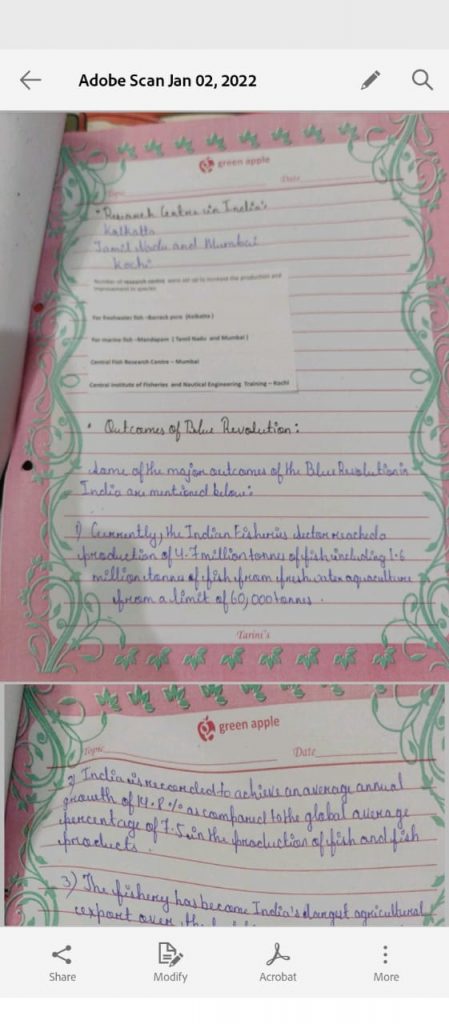 Adobe Scan Jan 02, 2022
green apple
Topic
Date
• Research Centre in India's
Kolkatta
Tamil Nadu and Mumbai
Kochi
Number of research centre were set up to increase the production and
improvement in species
For freshwater fish -Barrack pora (Kolkatta )
For marine fish –Mandapam ( Tamil Nadu and Mumbai )
Central Fish Research Centre – Mumbai
Central Institute of Fisheries and Nautical Engineering Training – Kochi
• Outcomes of Blue Revolution:
Some of the major outcomes of the Blue Revolution in
India are mentioned below:
1) Currently, the Indian Fisheries sector reached a
production of 4.7 million tonnes of fish including 1.6
million tonnes of fish from fresh water aquaculture
from a limit of 60,000 tonnes.
Tarini's
green apple
Topic
Date
2) India is recorded to achieve an average annual
growth of 14.8% as compared to the global average
percentage of 7.5 in the production of fish and fish
products.
3) The fishery has become India's largest agricultural
export over the
Share
Modify
Acrobat
More